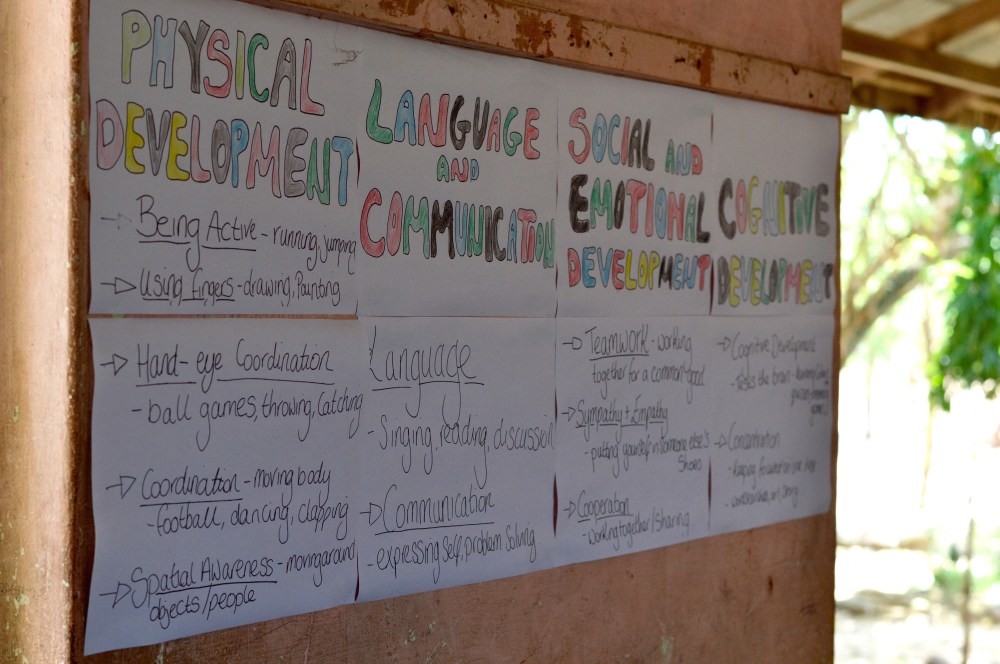 PHYSICAL
DEVELOPMENT
→ Being Active - running, jumping
→ Using fingers - drawing, Painting
→ Hand-eye Coordination
- ball games, throwing, Catching
→ Coordination - moving body
- football, dancing, clapping
→ Spatial Awareness - moving around
objects/people
LANGUAGE
AND
COMMUNICATION
Language
- Singing, reading, discussion
→ Communication
- expressing self, problem solving
SOCIAL AND
EMOTIONAL
DEVELOPMENT
→ Teamwork - working
together for a common good
→ Sympathy + Empathy
- putting yourself in someone else's
shoes
→ Cooperation
- working together/sharing
COGNITIVE
DEVELOPMENT
→ Cognitive Development
- Tests the brain -
→ Concentration
- Keeping focused on one